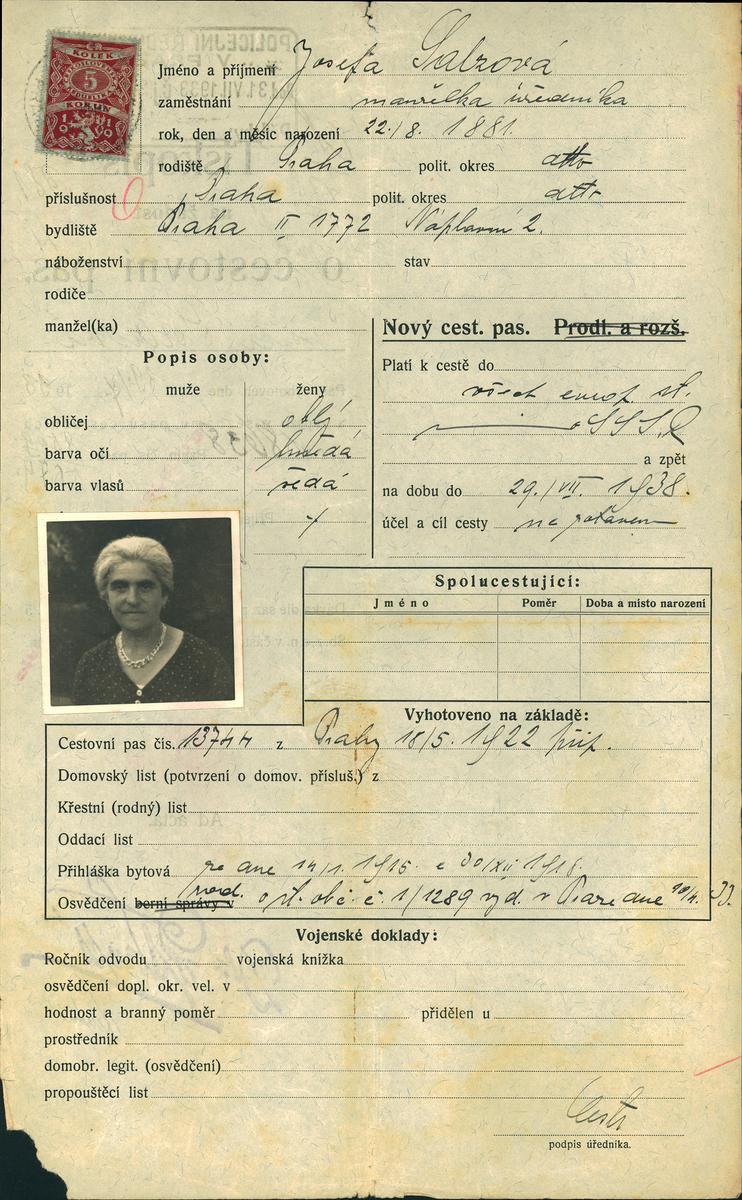 ČR
KOLEK
ČESKOSLOVENSKÁ REPUBLIKA
5
KORUN
1919
Jméno a příjmení Josefa Salzová
zaměstnání manželka úředníka
rok, den a měsíc narození 22./8. 1881.
rodiště Praha polit. okres dtto
příslušnost Praha polit. okres dtto
bydliště Praha II 1772 Náplavní 2.
náboženství stav
rodiče
manžel(ka)
Nový cest. pas. Prodl. a rozš.
Popis osoby:
Platí k cestě do
muže ženy
všech evrop. st.
obličej oblý
SSSR
barva očí hnědá
a zpět
barva vlasů šedá
na dobu do 29./VII. 1938.
účel a cíl cesty
Spolucestující:
Jméno Poměr Doba a místo narození
Vyhotoveno na základě:
Cestovní pas čís. 13744 z Prahy 18/5. 1922 příp.
Domovský list (potvrzení o domov. přísluš.) z
Křestní (rodný) list
Oddací list
Přihláška bytová ze dne 14/1. 1915. a 30/XII 1918.
Osvědčení berní správy v o st. obč. č. 1/1289 vyd. v Praze dne
Vojenské doklady:
Ročník odvodu vojenská knížka
osvědčení dopl. okr. vel. v
hodnost a branný poměr přidělen u
prostředník
domobr. legit. (osvědčení)
propouštěcí list
podpis úředníka.